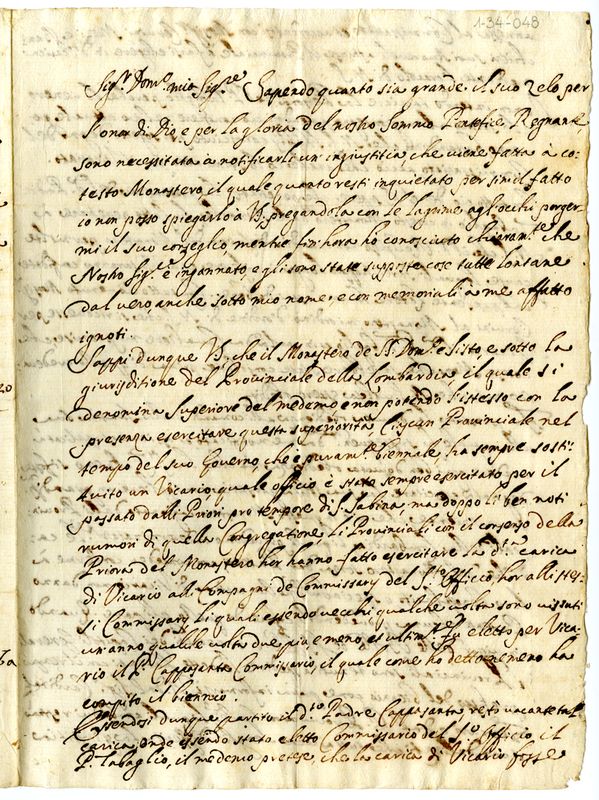 1-34-048
Sig.r Dom.o mio Sig.re Sapendo quanto sia grande il suo zelo per
l'onor di Dio e per la gloria del nostro Sommo Pontefice Regnante,
sono necessitata à notificarli un ingiustitia, che viene fatta à co-
testo Monastero, il quale quanto resti inquietato per simil fatto
io non posso spiegarlo à VS. pregandola con le lagrime agl'occhi porger-
mi il suo conseglio, mentre fin'hora ho conosciuto chiaram.te che
Nostro Sig.re è ingannato, e gli sono state supposte cose tutte lontane
dal vero, anche sotto mio nome, e con memoriali à me affatto
ignoti.
Sappi dunque VS. che il Monastero de SS. Dom.co e Sisto, e sotto la
giurisditione del Provinciale della Lombardia, il quale si
denomina Superiore del medemo, e non potendo l'istesso con la
presenza esercitare questa superiorità, ciascun Provinciale nel
tempo del suo Governo, che è puram.te biennale, ha sempre sosti-
tuito un Vicario, quale officio è stato sempre esercitato per il
passato dalli Priori pro tempore di S. Sabina, ma doppo li ben noti
rumori di quella Congregatione, li Provinciali con il consenso della
Priora del Monastero her hanno fatto esercitare la d.ta carica
di Vicario alli Compagni de Commissarj del S.to Officio, hor alli istes-
si Commissarj, li quali essendo vecchi, qualche volta sono vissuti
un anno, qualche volta due più e meno, et ultimam.te fu eletto per Vica-
rio il P. Cappasanta Commissario, il quale come ho detto nemeno ha
compito il biennio.
Essendosi dunque partito il d.to Padre Cappasanta restò vacante tal
carica, onde essendo stato eletto Commissario del S.to Officio il
P. Tabaglio, il medemo pretese, che la carica di Vicario fosse